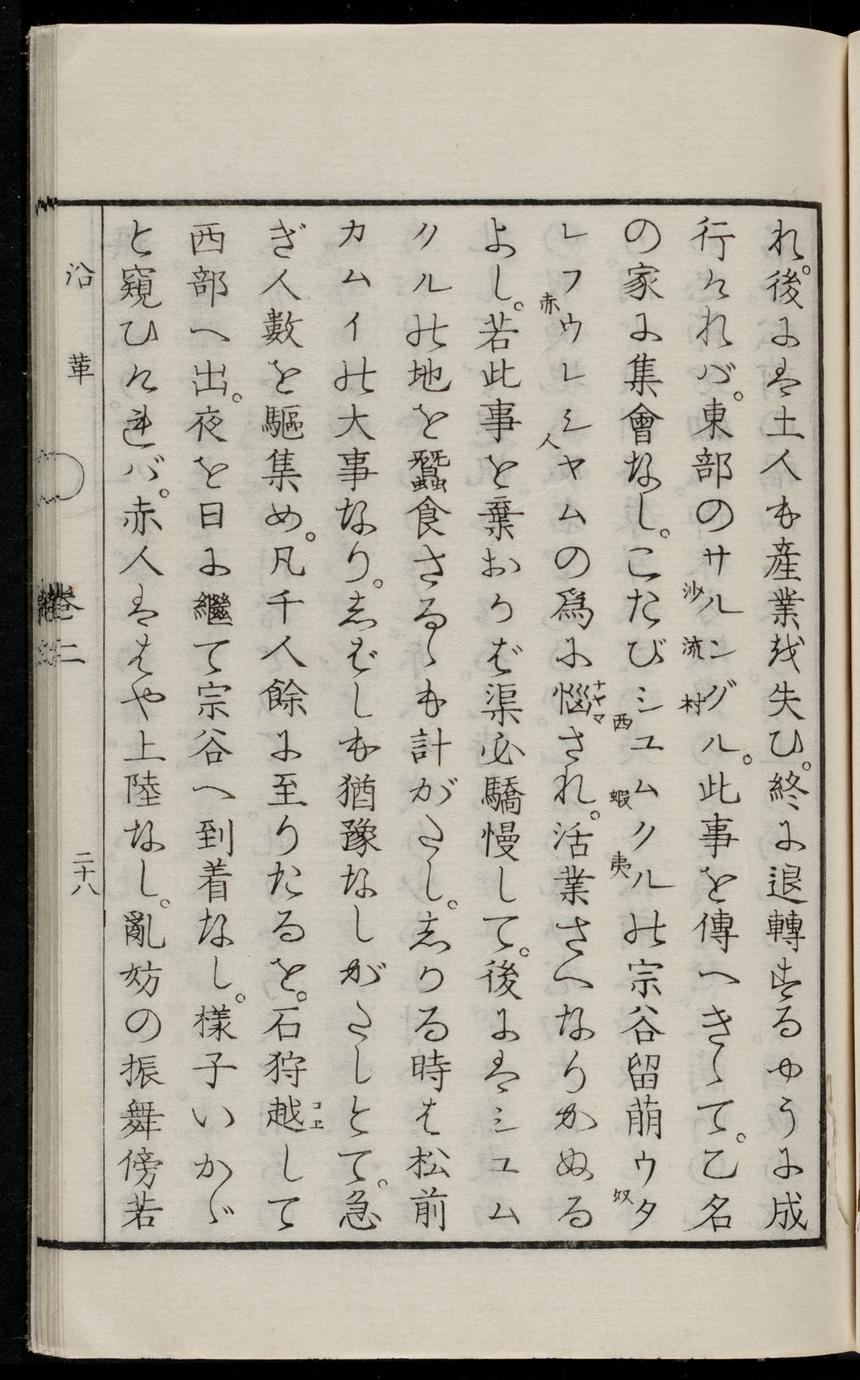 れ。後に者土人も産業越失ひ。終に退轉するやうに成
行けれバ。東部のサルングル。此事を傳へきゝて。乙名
沙流村
の家に集會なし。こたびシユムクル能宗谷留萠ウタ
西蝦夷
奴
レフウレシヤムの爲に惱され。活業さへなりかぬる
赤人
ナヤマ
よし。若此事を棄おかば渠必驕慢して。後に者シユム
クル能地を蠶食さるゝも計がたし。志かる時は松前
カムイ能大事なり。志ばしも猶豫なしがたしとて。急
ぎ人數を驅集め。凡千人餘に至りたるを。石狩越して
コエ
西部へ出。夜を日に繼て宗谷へ到着なし。様子いかゞ
と窺ひけ連バ。赤人者はや上陸なし。亂妨の振舞傍若
沿革
卷二
二十八